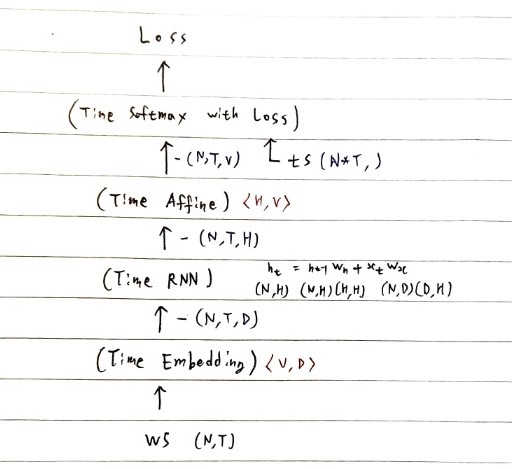 Loss
↑
(Time Softmax with Loss)
↑-(N,T,V) ↑ts (N*T,)
(Time Affine) <H,V>
↑-(N,T,H)
(Time RNN) ht = ht-1 Wh + xt Wx
(N,H) (N,H)(H,H) (N,D)(D,H)
↑-(N,T,D)
(Time Embedding) <V,D>
↑
WS (N,T)